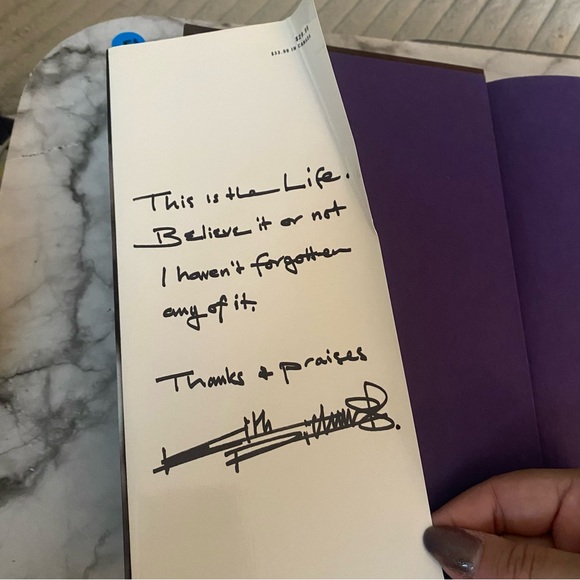 $33.00 IN CANADA
This is the Life.
Believe it or not
I haven't forgotten
any of it.
Thanks + praises